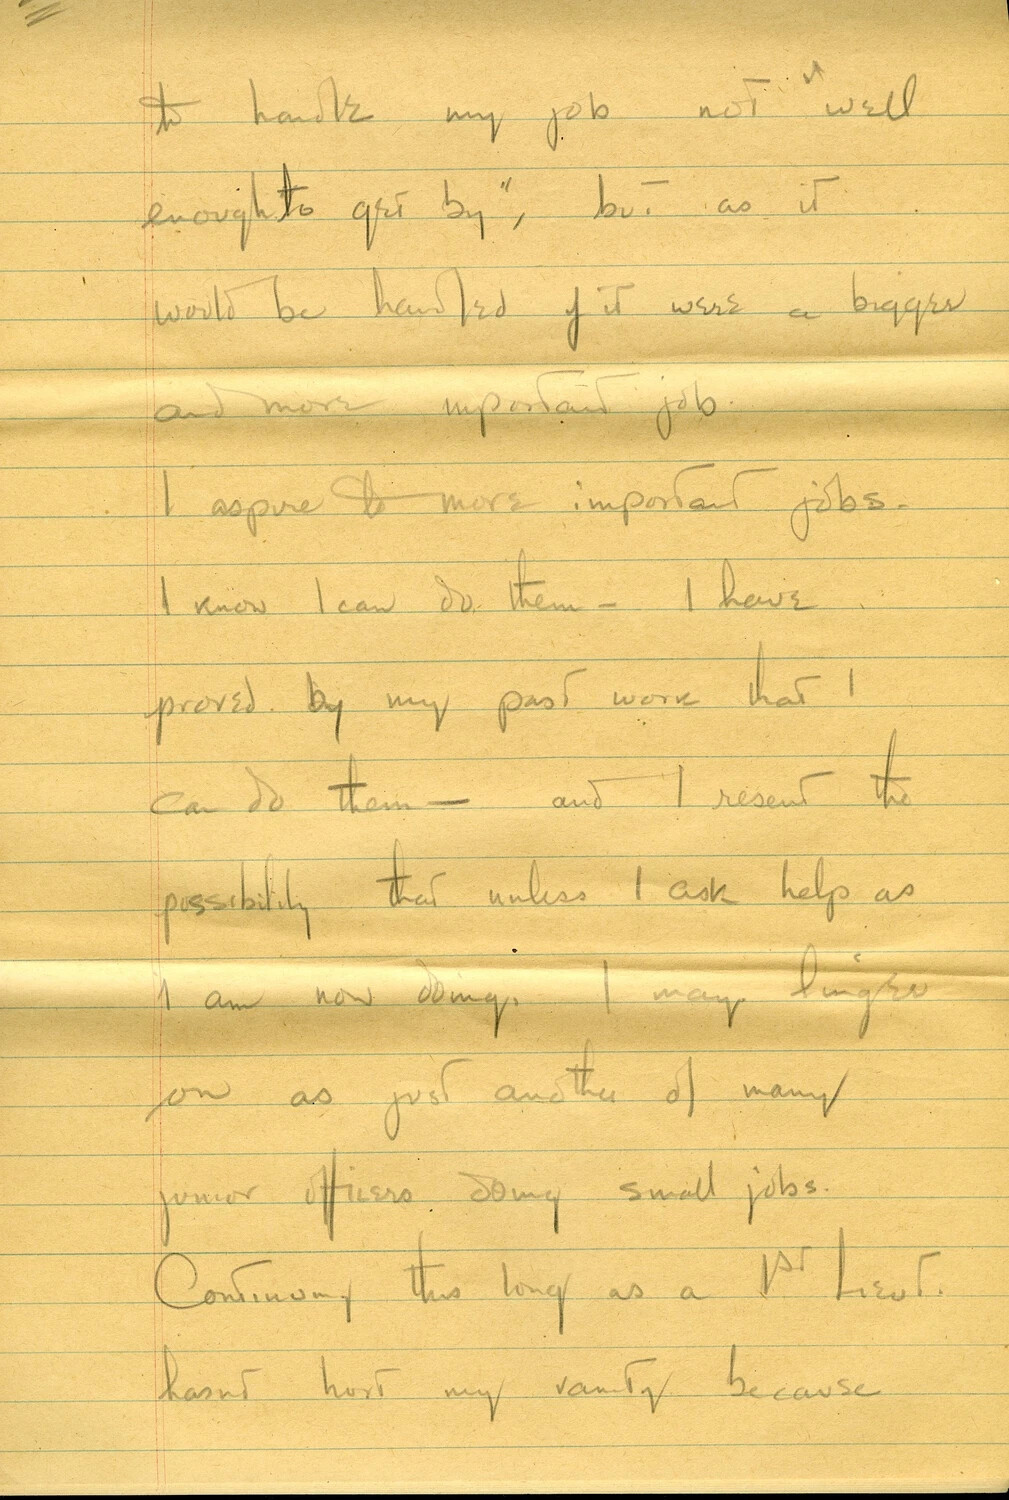 to handle my job not "well
enough to get by", but as it
would be handled if it were a bigger
and more important job.
I aspire to more important jobs.
I know I can do them – I have
proved by my past work that I
can do them – and I resent the
possibility that unless I ask help as
I am now doing, I may linger
on as just another of many
junior officers doing small jobs.
Continuing this long as a 1st Lieut.
hasnt hurt my vanity because